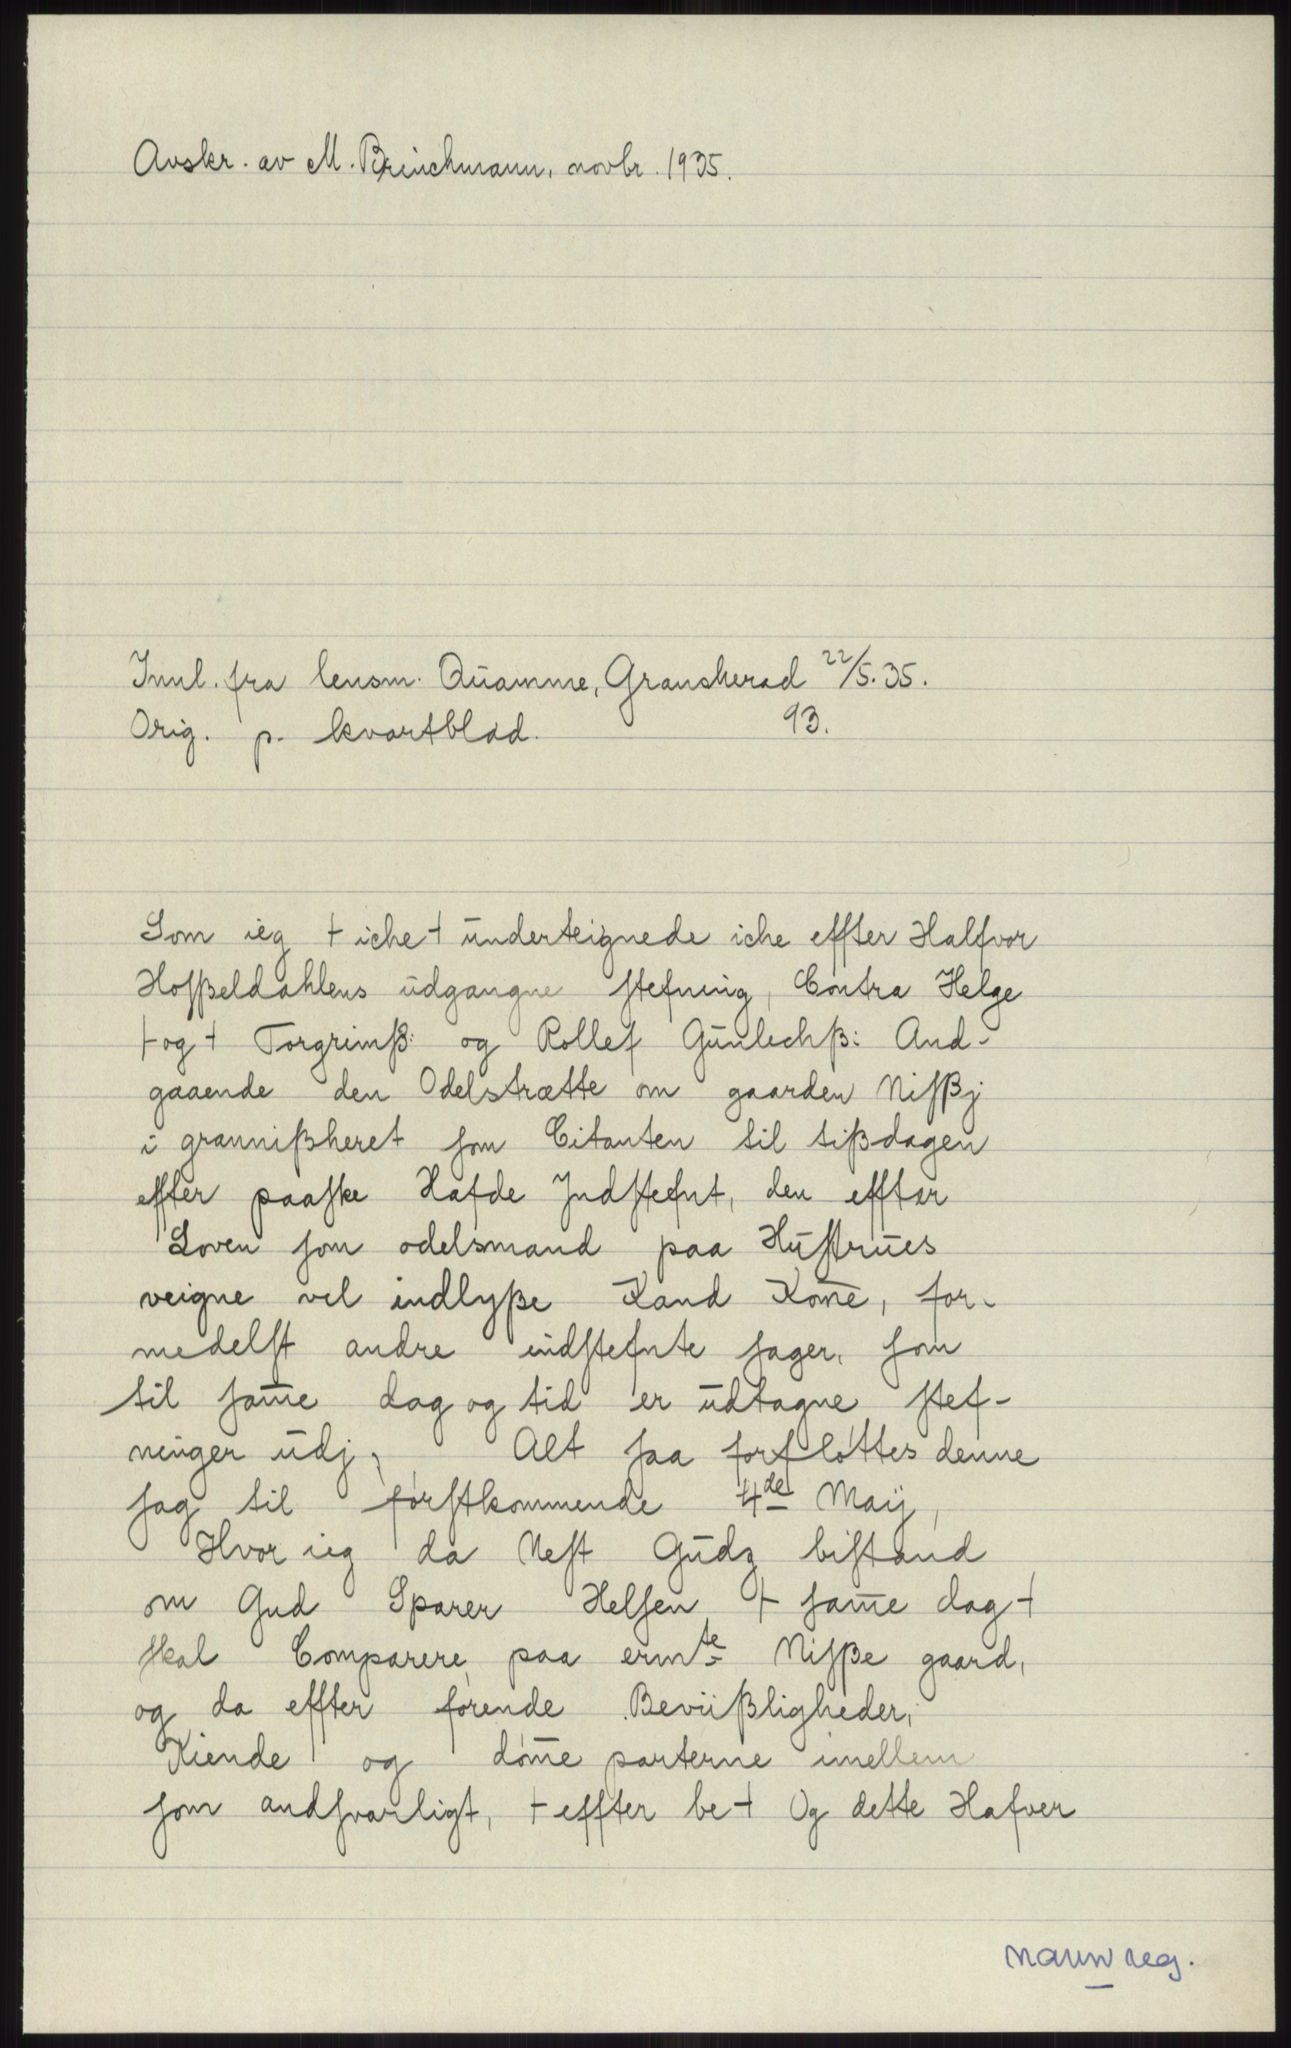 Avskr. av M. Brinchmann, novbr. 1935.
Innl. fra lensm. Quamme, Gransherad 22/5.35.
Orig. p. kvartblad. 93.
Som ieg + iche + underteignede iche effter Halfvor
Hofßeldahlens udgangne stefning, Contra Helge
+ og + Torgrimß: og Rollef Gunlechß: And-
gaaende den Odelstrætte om gaarden Nisßj
i grannißheret som Citanten til tißdagen
effter paaske Hafde Indstefnt, den effter
Loven som odelsmand paa Hustrues
veigne vel indlyße Kand Kom̄e, for-
medelst andre indstefnte sager, som
til sam̄e dag og tid er udtagne stef-
ninger udj, Alt saa forfløttes denne
sag til førstkommende 4de Maij,
Hvor ieg da Nest Gudz bistand
om Gud Sparer Helsen + sam̄e dag +
skal Comparere paa ermte Nisße gaard,
og da effter førende Beviißligheder,
Kiende og døm̄e parterne imellem
som andsvarligt, + effter be + Og dette Hafver
navnreg.